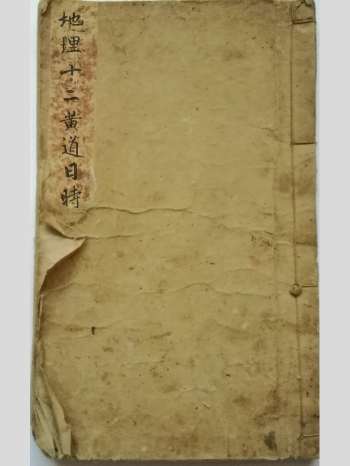 地理十二黃道日時